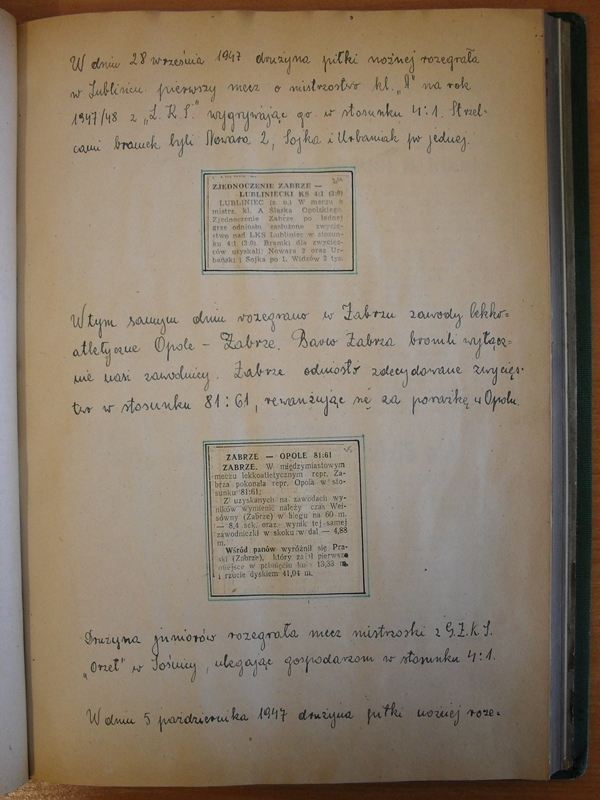 W dniu 28 września 1947 drużyna piłki nożnej rozegrała
w Lublińcu pierwszy mecz o mistrzostwo kl. „A” na rok
1947/48 z „L.K.S.” wygrywając go w stosunku 4:1. Strzel-
cami bramek byli Nowara 2, Sojka i Urbaniak po jednej.
ZJEDNOCZENIE ZABRZE —
LUBLINIECKI KS 4:1 (3:0)
LUBLINIEC (z. o.) W meczu o
mistrz. kl. A Śląska Opolskiego,
Zjednoczenie Zabrze po ładnej
grze odniosło zasłużone zwycię-
stwo nad LKS Lubliniec w stosun-
ku 4:1 (3:0). Bramki dla zwycięz-
ców uzyskali: Nowara 2 oraz Ur-
bański i Sojka po 1. Widzów 2 tys.
W tym samym dniu rozegrano w Zabrzu zawody lekko=
atletyczne Opole – Zabrze. Barw Zabrza bronili wyłącz=
nie nasi zawodnicy. Zabrze odniosło zdecydowane zwycięs-
two w stosunku 81:61, rewanżując się za porażkę w Opolu.
ZABRZE — OPOLE 81:61
ZABRZE. W międzymiastowym
meczu lekkoatletycznym repr. Za-
brza pokonała repr. Opola w sto-
sunku 81:61.
Z uzyskanych na zawodach wy-
ników wymienić należy czas Wei-
sówny (Zabrze) w biegu na 60 m.
— 8,4 sek. oraz wynik tej samej
zawodniczki w skoku w dal — 4,88
m.
Wśród panów wyróżnił się Pra-
ski (Zabrze), który zajął pierwsze
miejsce w pchnięciu kulą 13,33 m.
i rzucie dyskiem 41,04 m.
Drużyna juniorów rozegrała mecz mistrzoski z G.Z.K.S.
„Orzeł” w Sośnicy, ulegając gospodarzom w stosunku 4:1.
W dniu 5 października 1947 drużyna piłki nożnej roze-